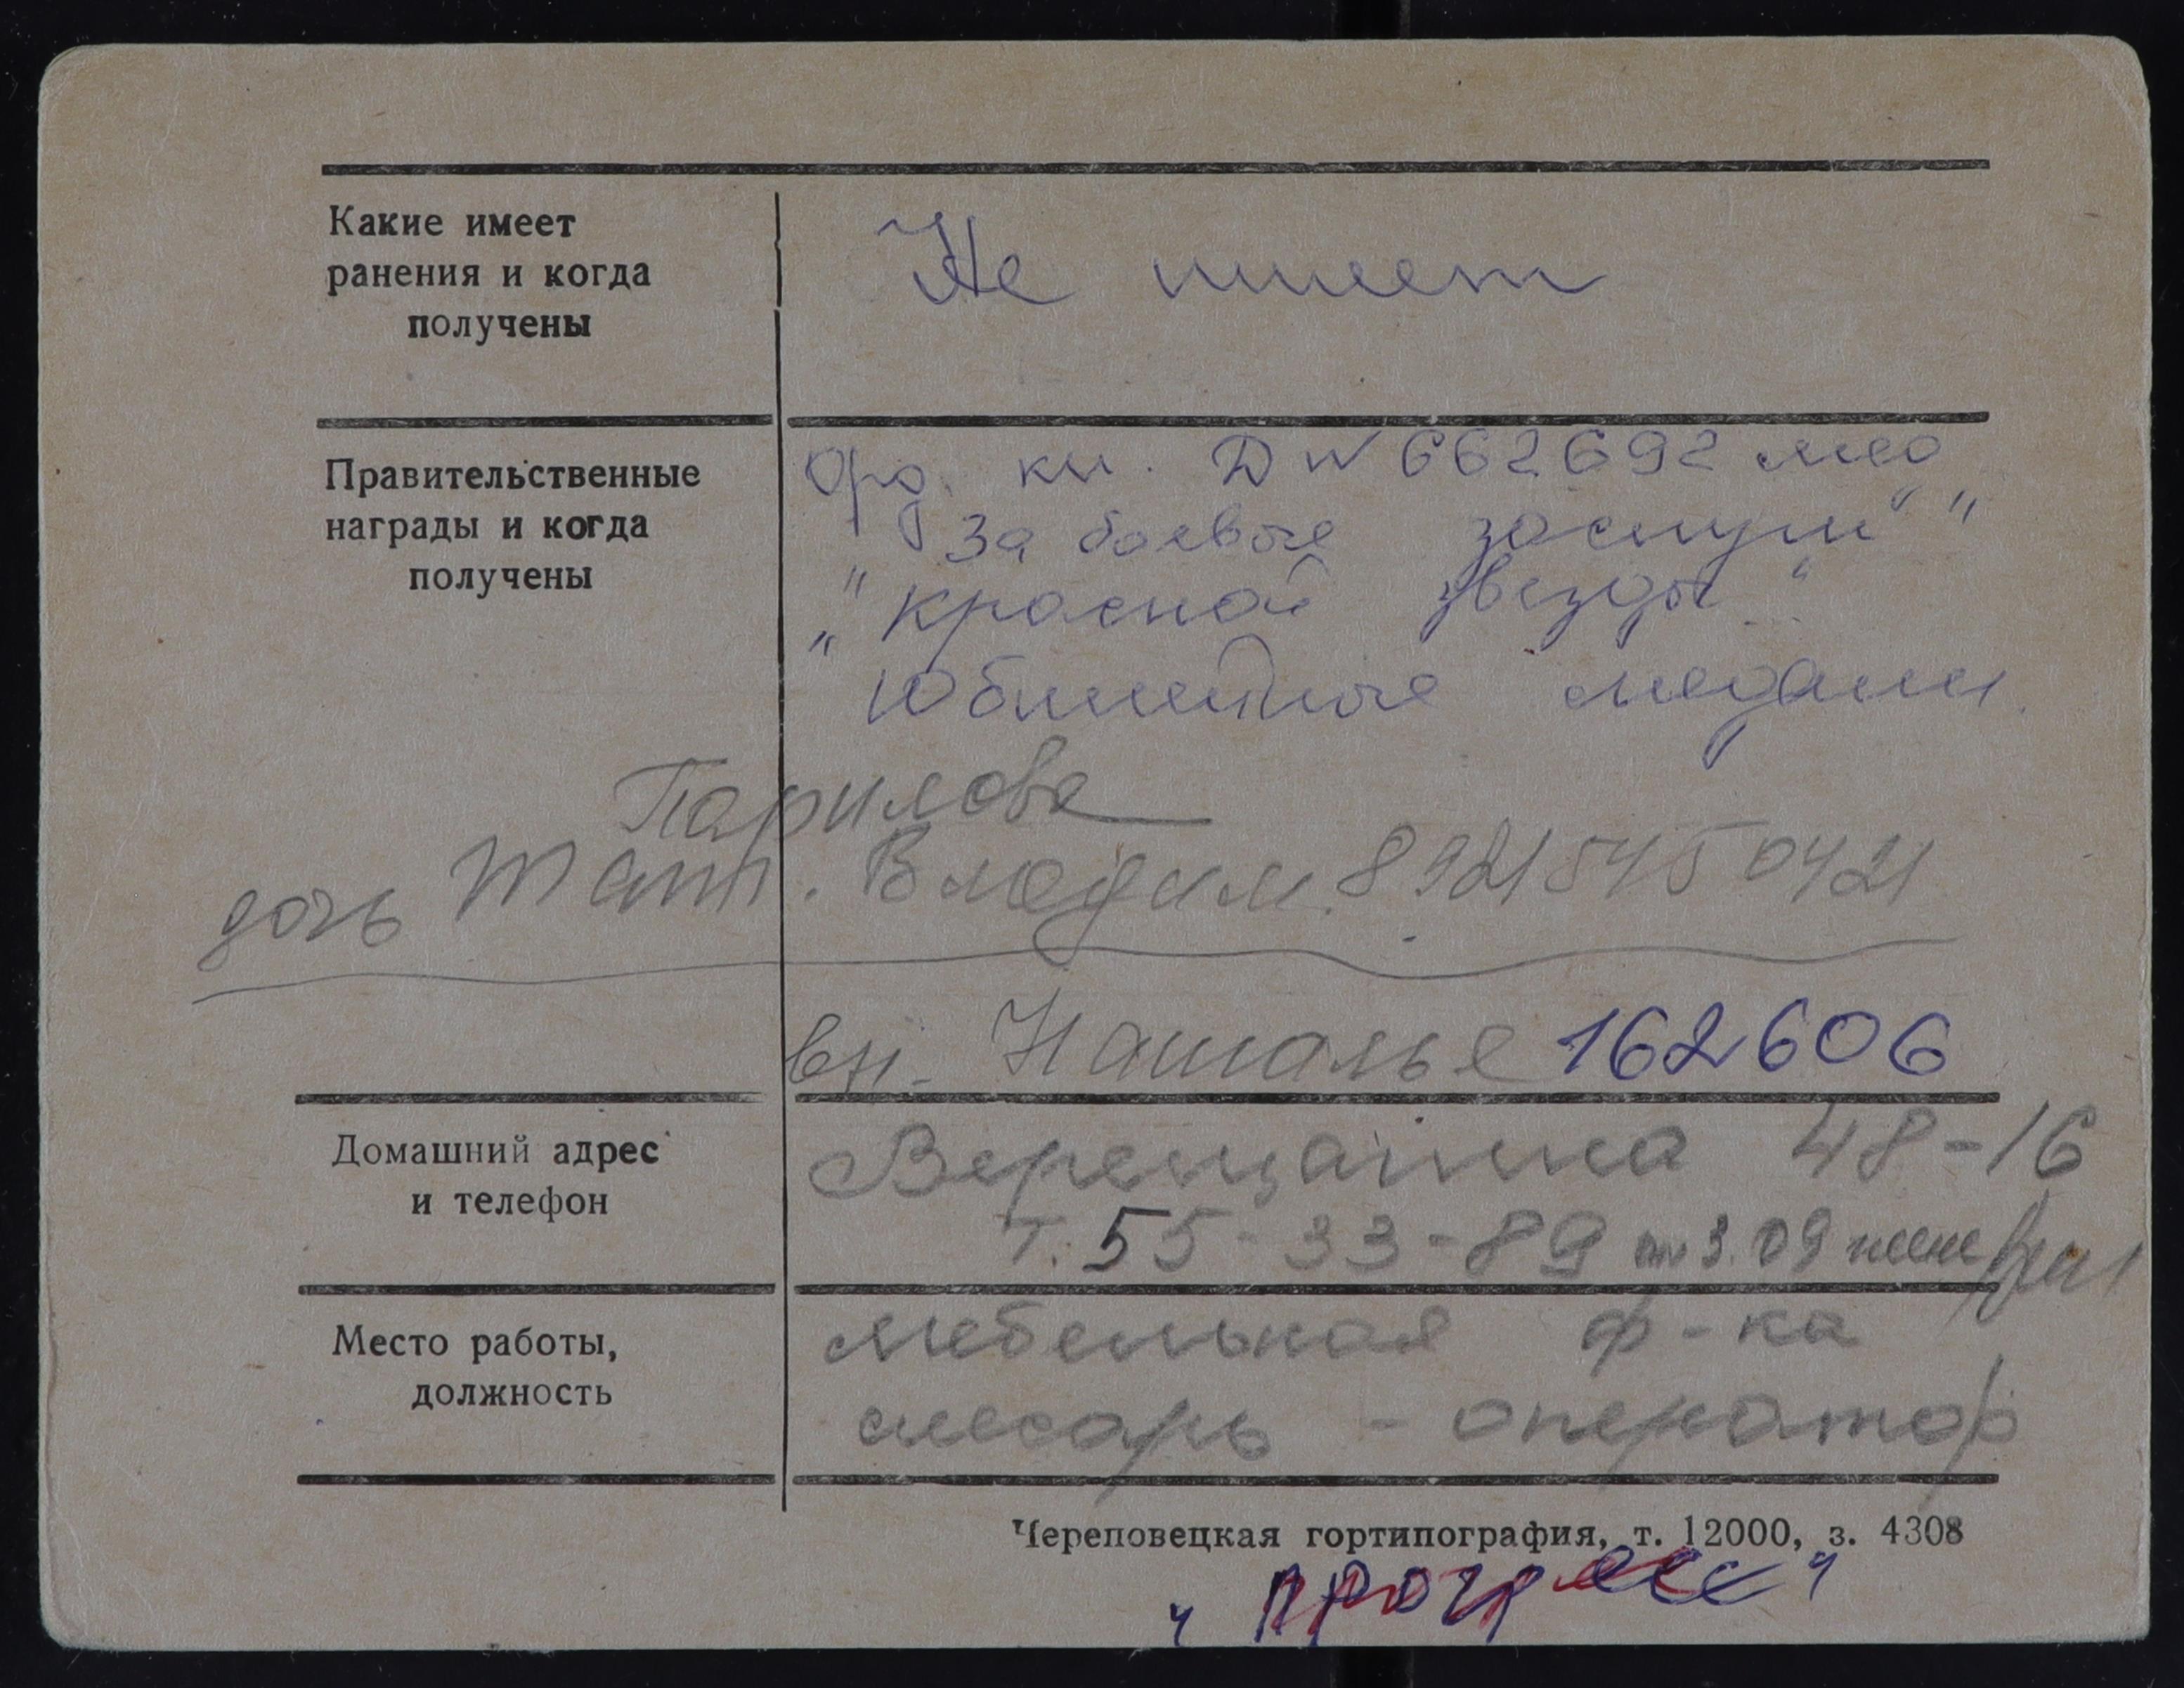 Какие имеет
ранения и когда
получены
Не имеет
Правительственные
награды и когда
получены
Орд. кн. Д № 662692 мед
" За боевые заслуги" "
" Красной звезды "
" Юбилейные медали.
Парилова
дочь Тат. Владим. 89215450421
вн. Наталье 162606
Домашний адрес
и телефон
Верещагина 48-16
т. 55-33-89
Место работы,
должность
мебельная ф-ка
слесарь - оператор
Череповецкая гортипография, т. 12000, з. 4308
"Прогресс"